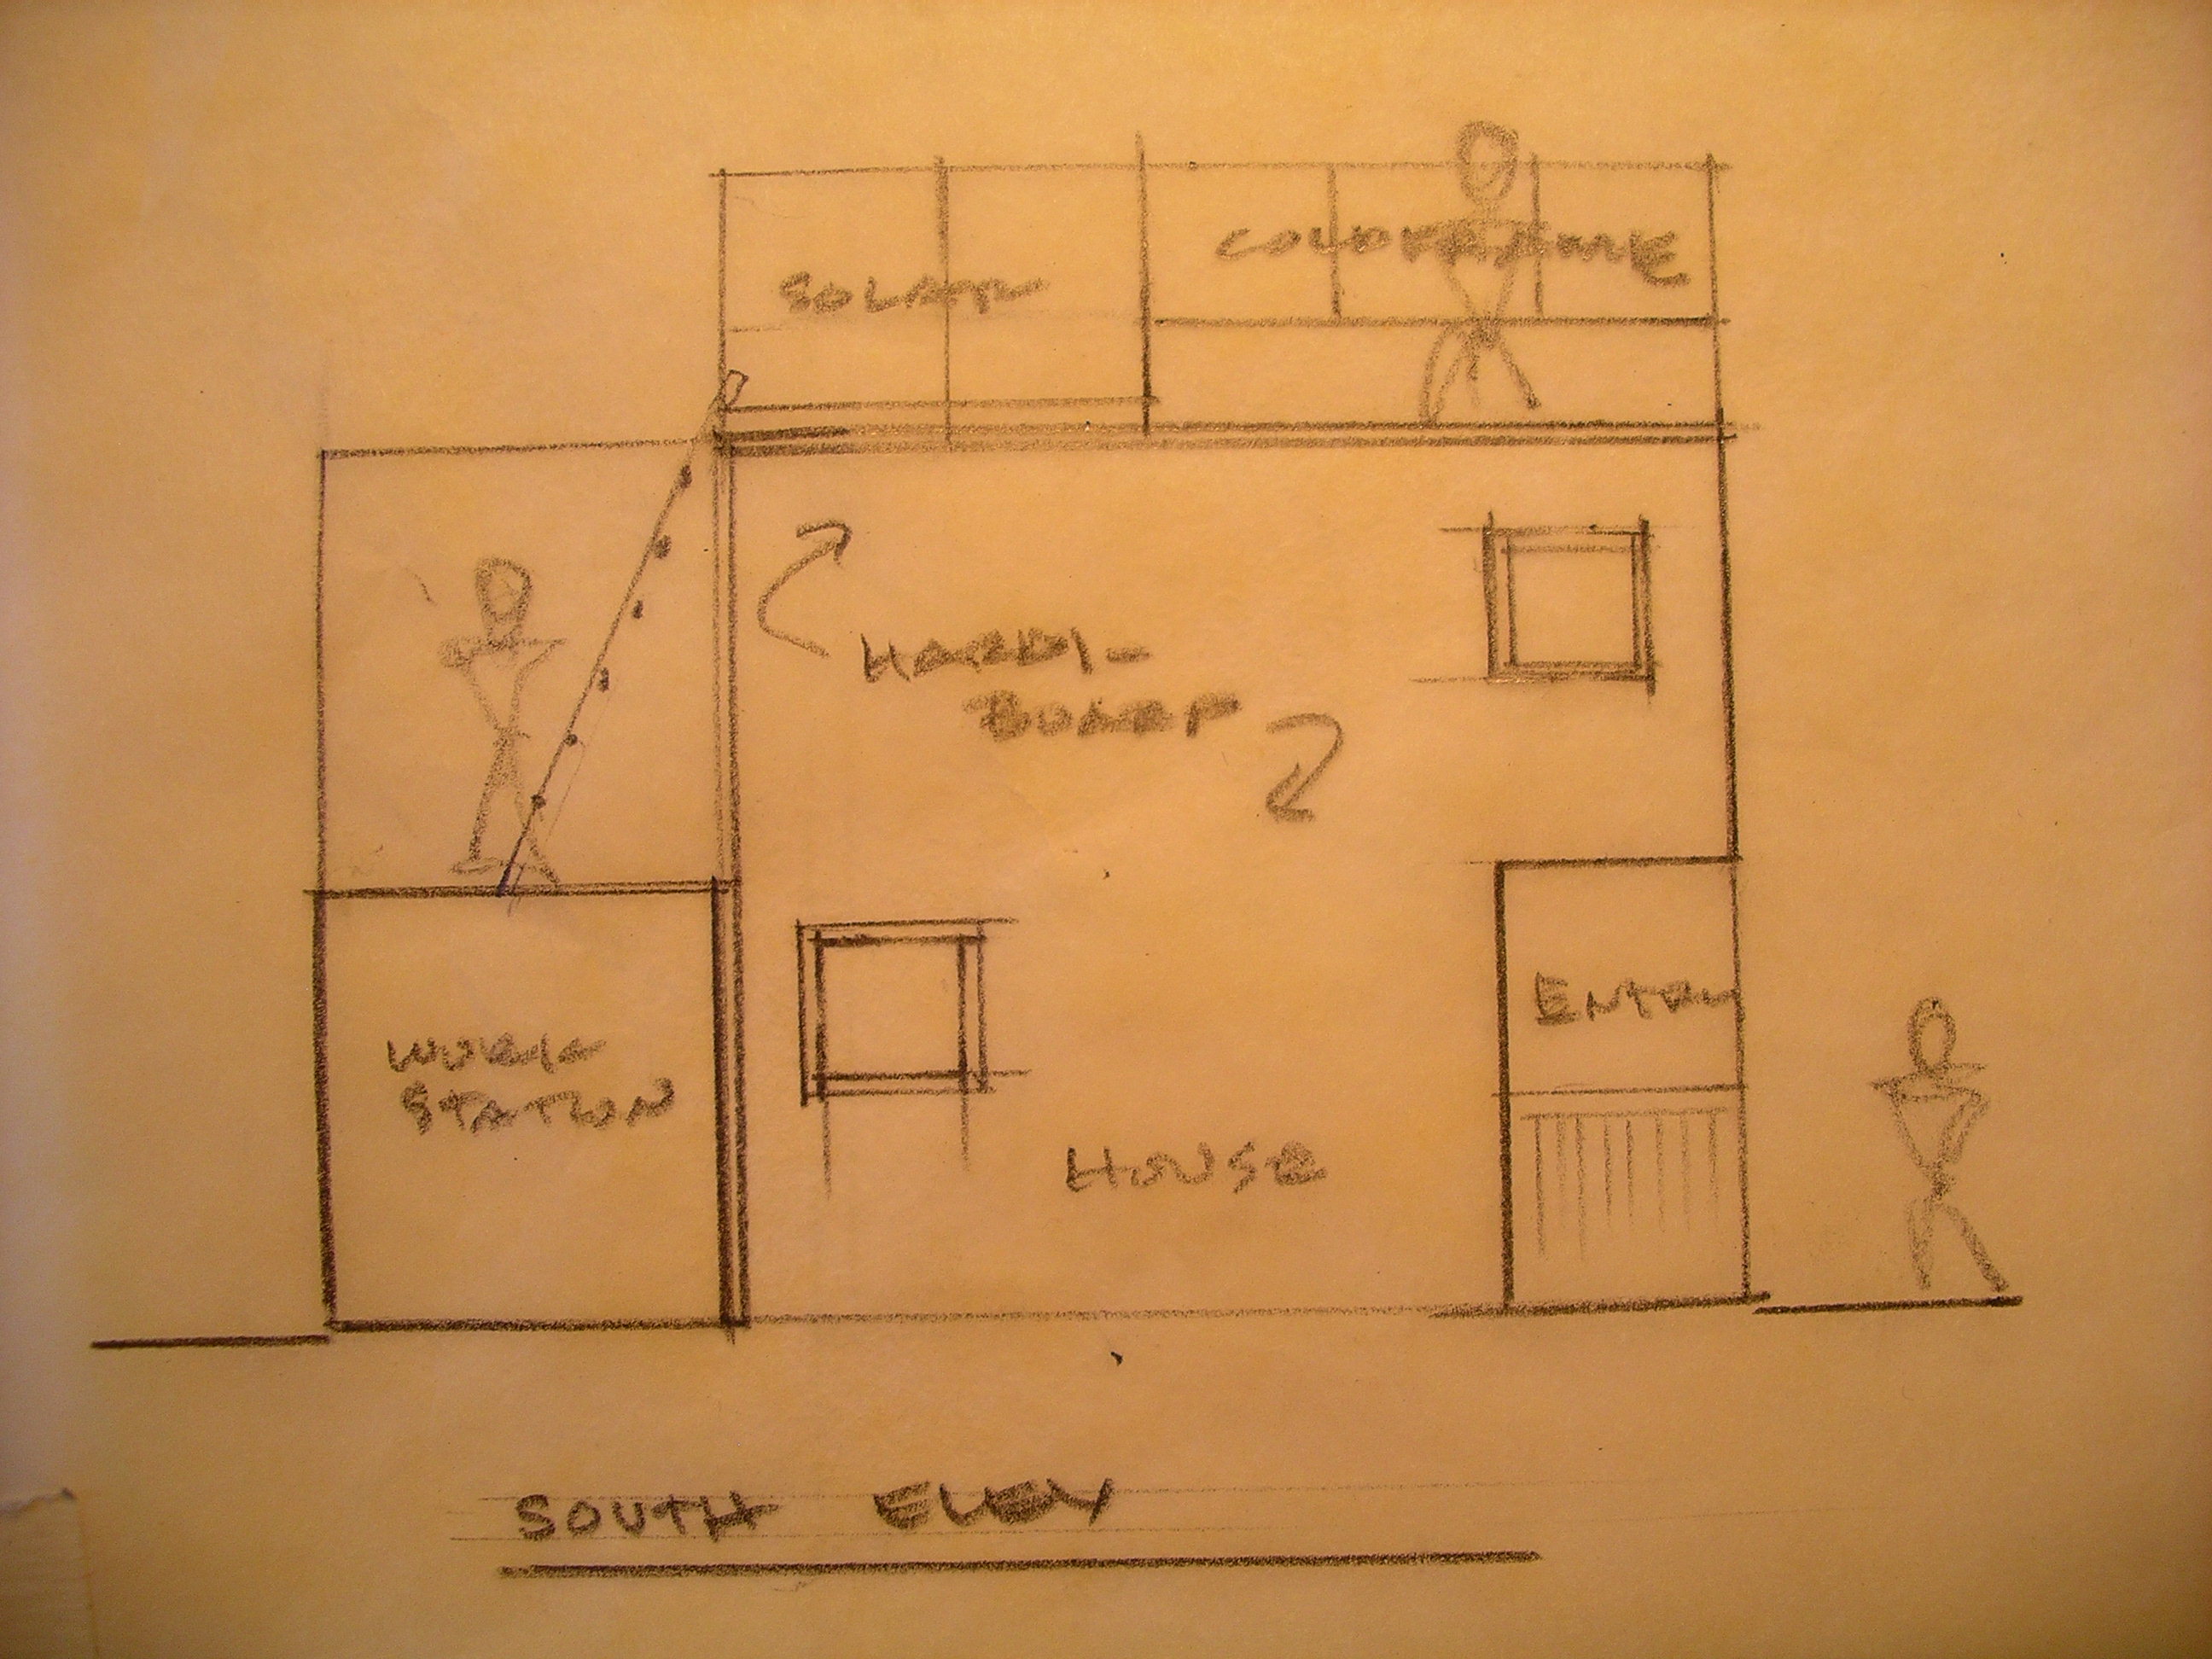 SOLAR
COLDFRAME
HARDI-
BOARD
WORK
STATION
ENTRY
HOUSE
SOUTH ELEV